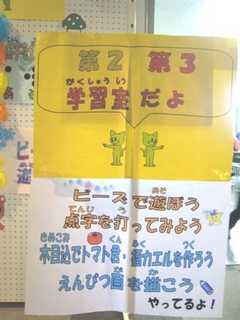 第2 第3
がくしゅう い
学習室だよ
あそ
ビーズで遊ぼう
てんじ う
点字を打ってみよう
きめこみ くん ふく つく
木目込でトマト君・福カエルを作ろう
えんぴつ画を描こう
やってるよ!